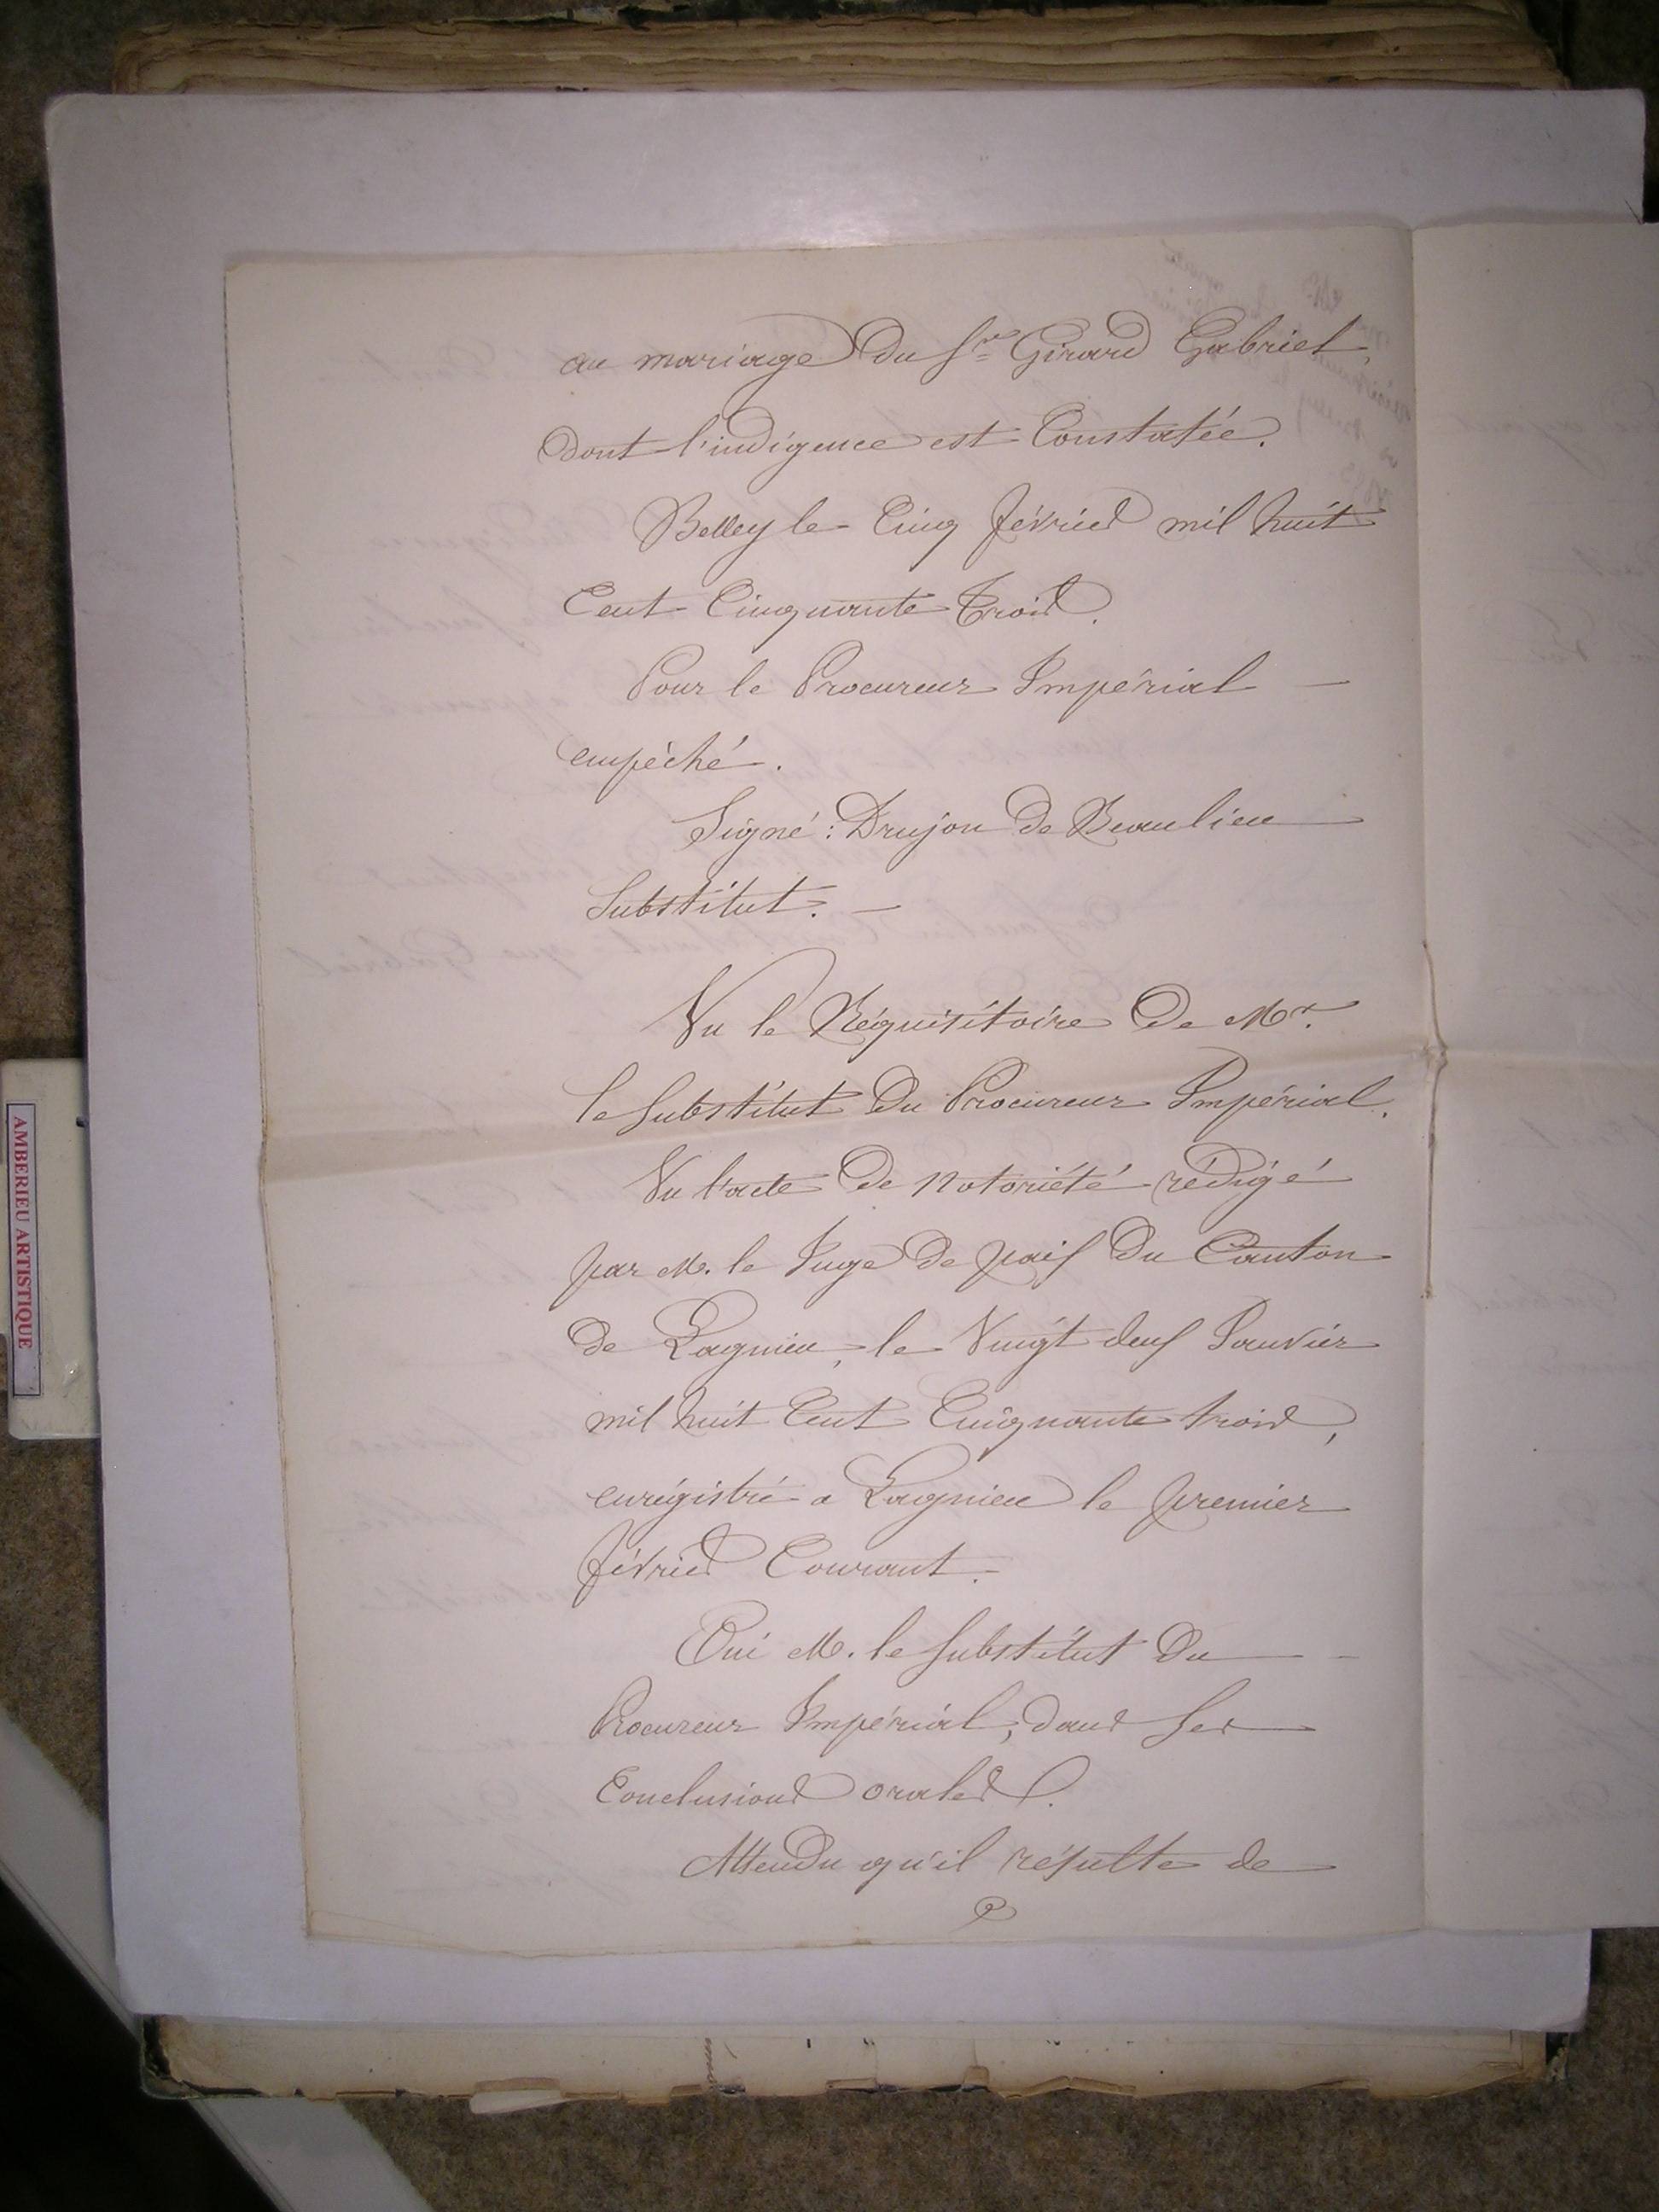 au mariage du Sr Girard Gabriel,
dont l'indigence est Constatée.
Belley le Cinq février mil huit
Cent Cinquante Trois.
Pour le Procureur Impérial —
empêché.
Signé : Drujon de Beaulieu
Substitut. —
Vu le Réquisitoire de Mr.
le Substitut du Procureur Impérial.
Vu l'acte de notoriété rédigé
par M. le Juge de paix du Canton
de Lagnieu, le Vingt deux Janvier
mil huit Cent Cinquante trois,
enrégistré a Lagnieu le premier
février Courant. -
Oui M. le Substitut du —
Procureur Impérial, dans ses
Conclusions orales.
Attendu qu'il résulte de
AMBERIEU ARTISTIQUE